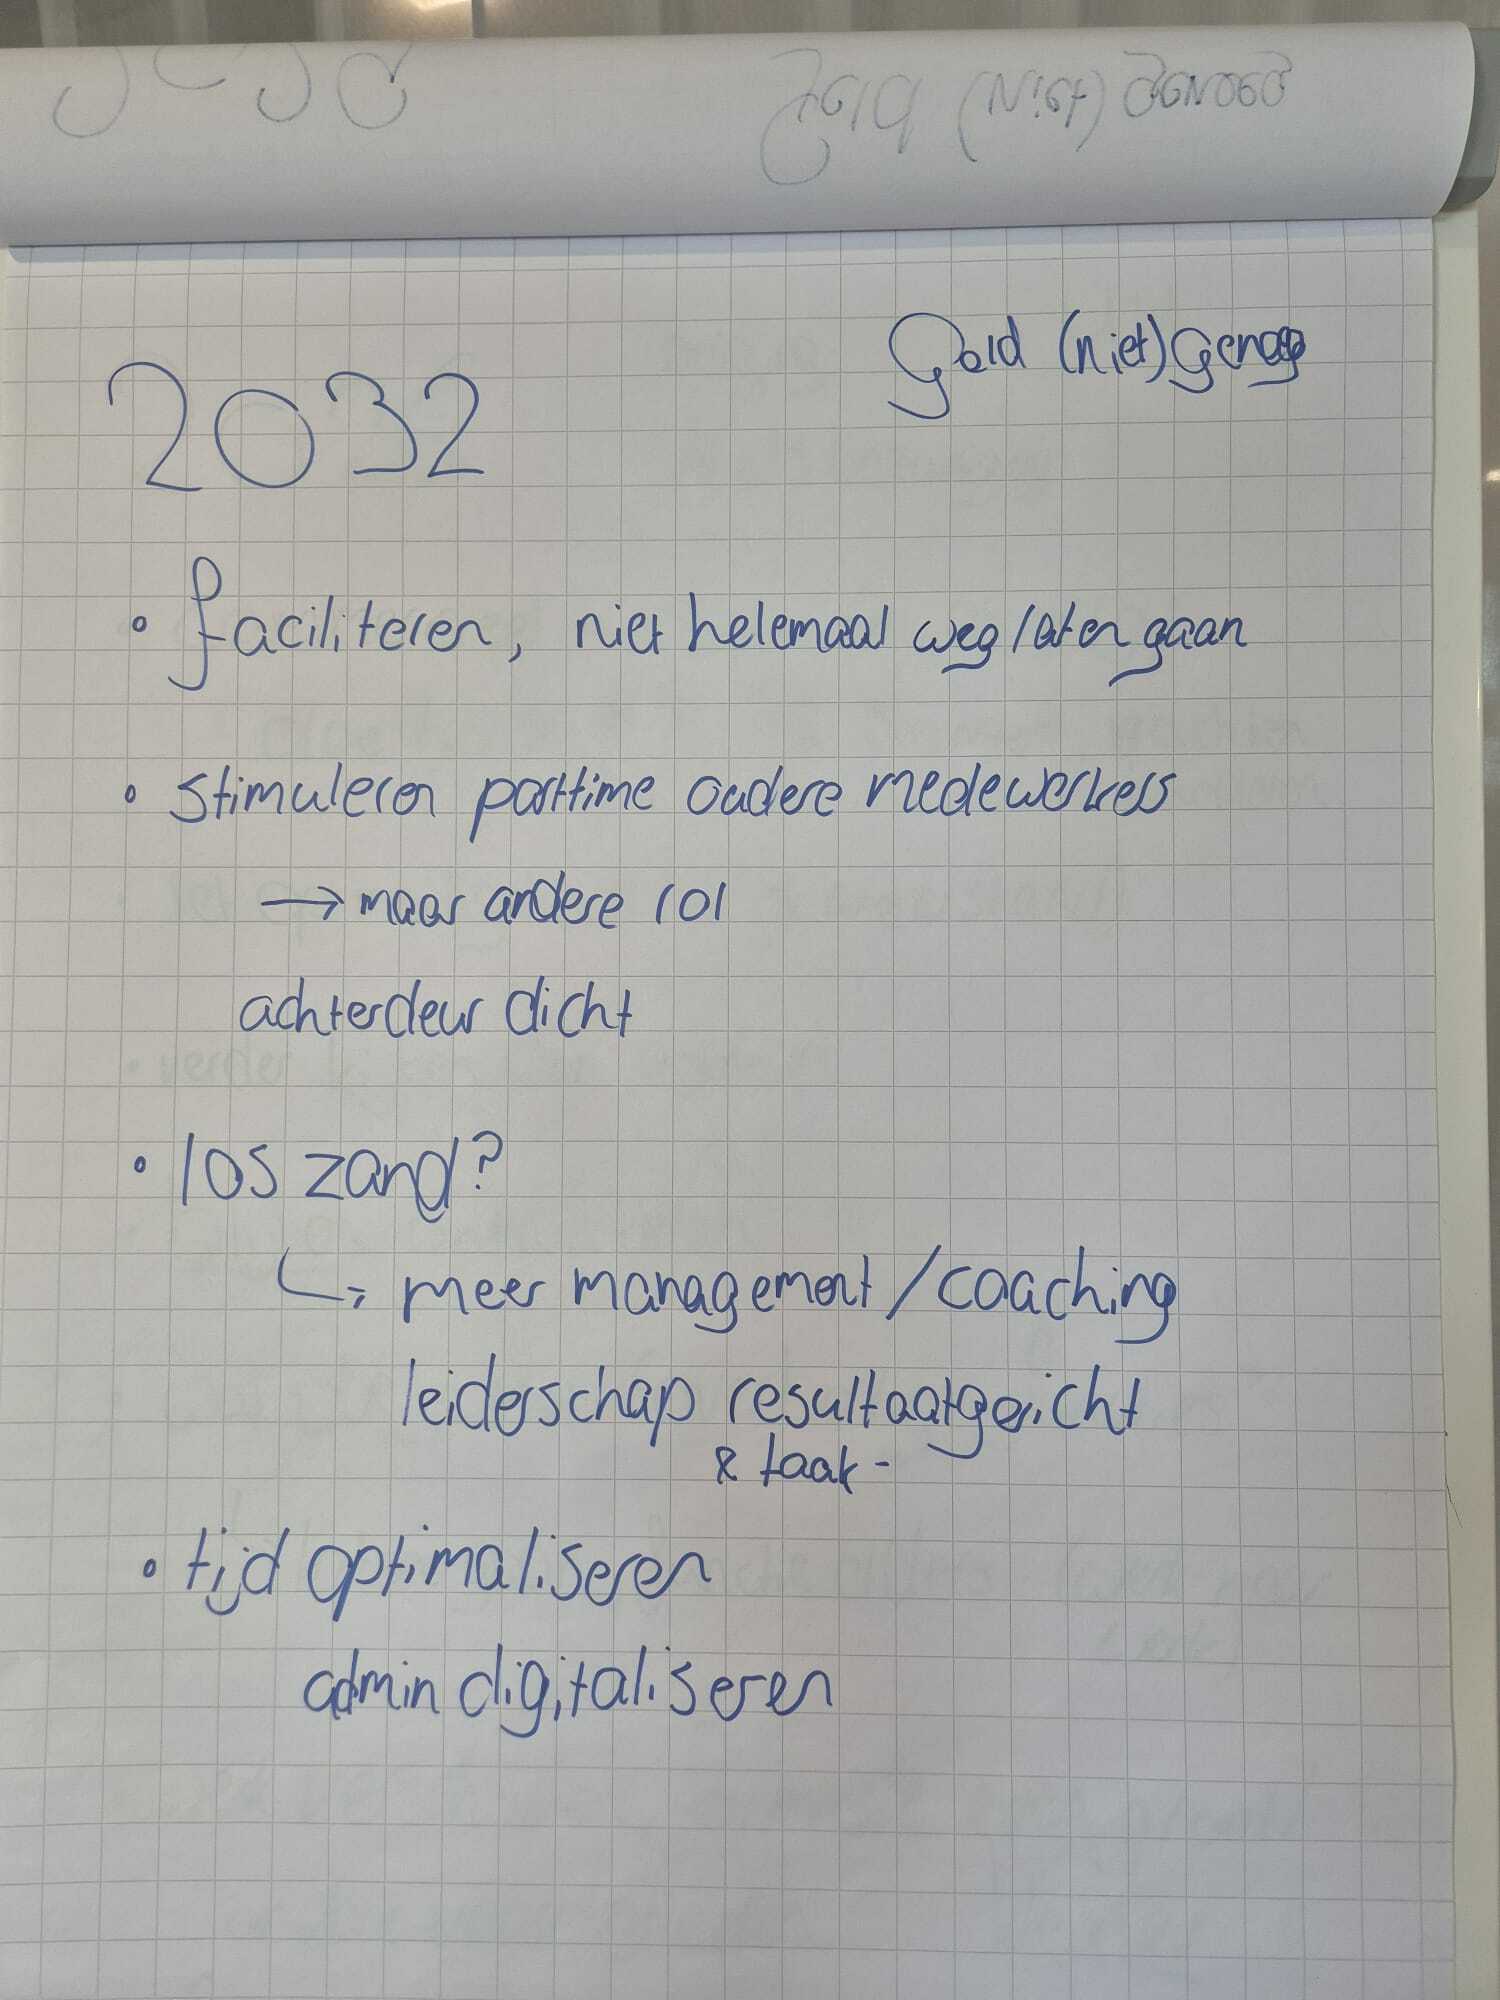 Geld (niet) genoeg
2032
• faciliteren, niet helemaal weg laten gaan
• stimuleren parttime oudere medewerkers
→ maar andere rol
achterdeur dicht
• los zand?
↳ meer management / coaching
leiderschap resultaatgericht
& taak -
• tijd optimaliseren
admin digitaliseren